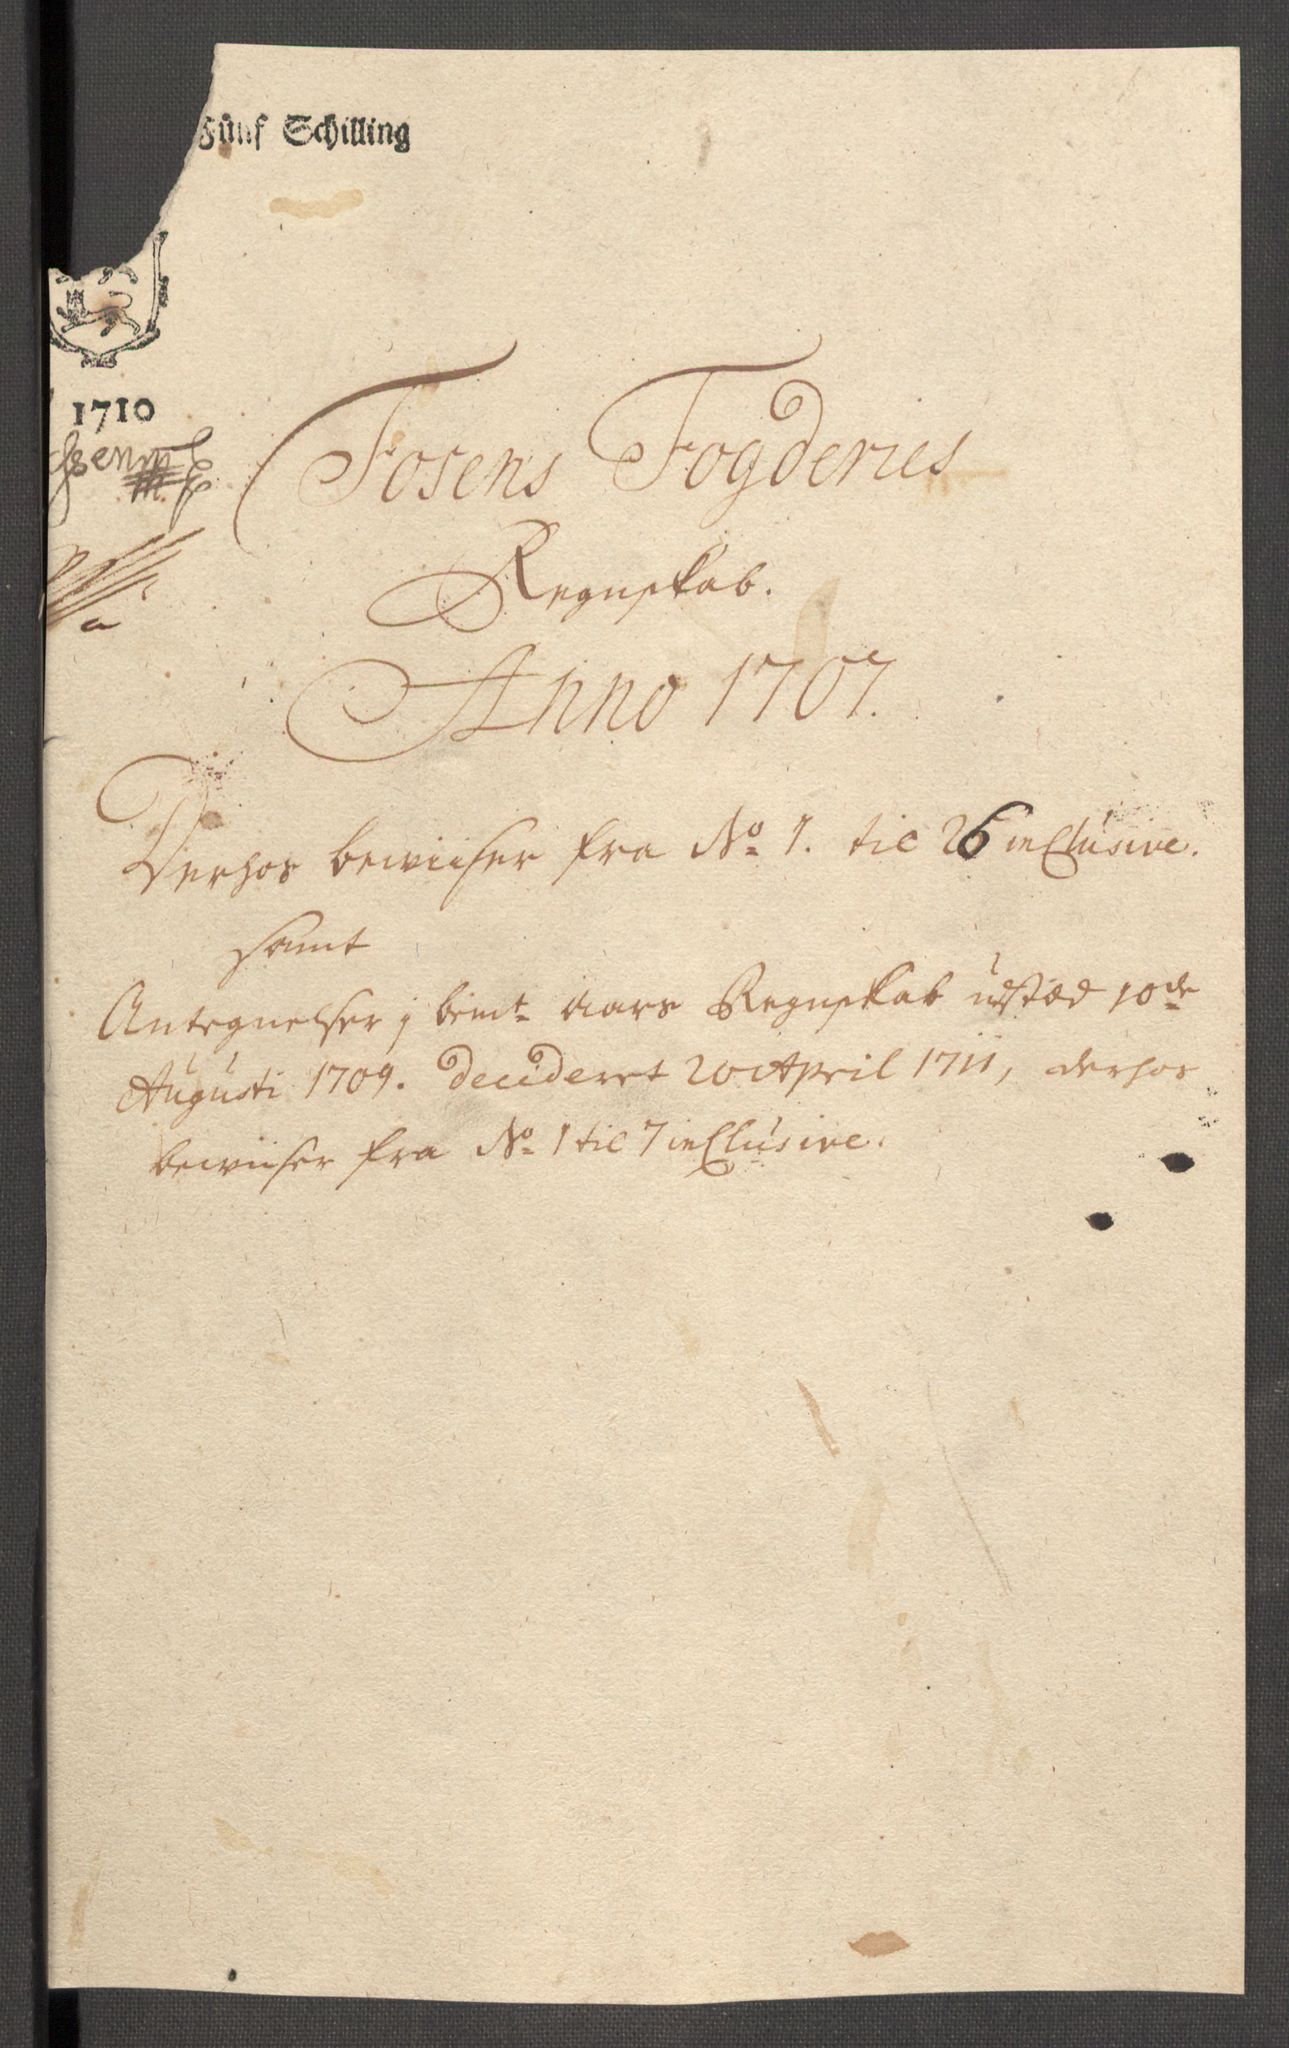 Fünf Schilling
1710
Fosens Fogderies
Regnskab.
Anno 1707.
Derhos bewiiser fra No 1. til 26 inclusive.
samt
Antegnelser j bemt. Aars Regnskab udstæd 10de
Augusti 1709. decideret 20 April 1711, derhos
bewiiser fra No 1 til 7 inclusive.